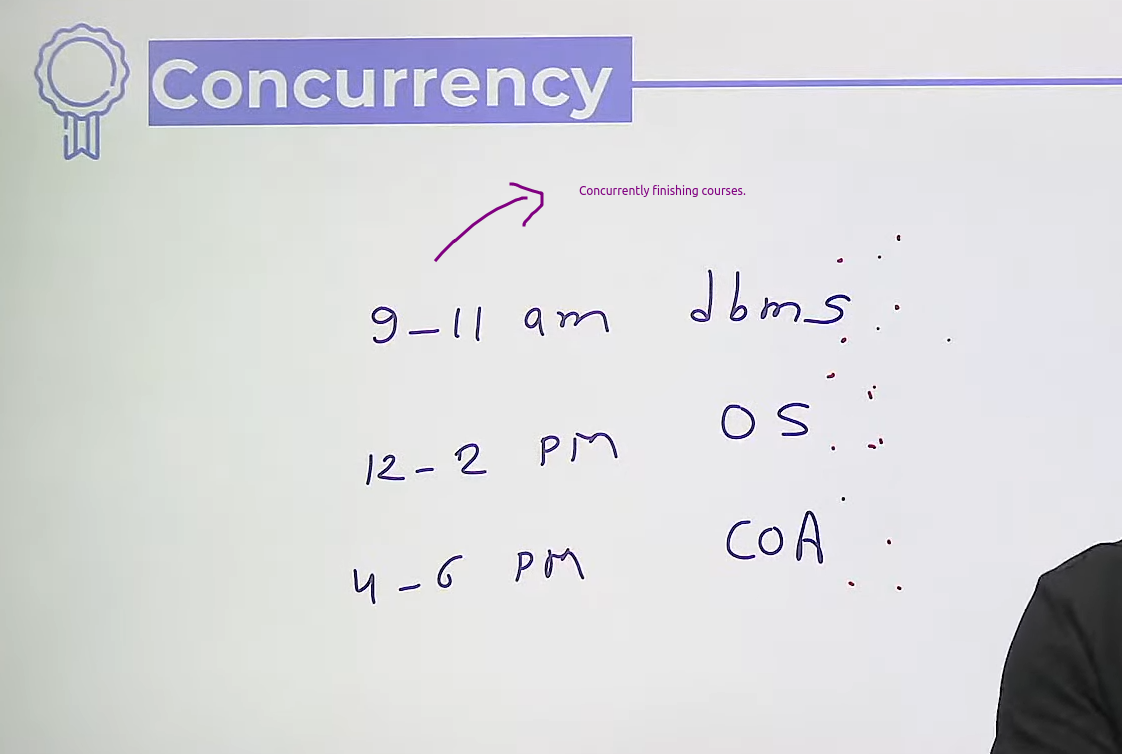 Concurrency
Concurrently finishing courses.
9-11 am dbms
12-2 PM OS
4-6 PM COA